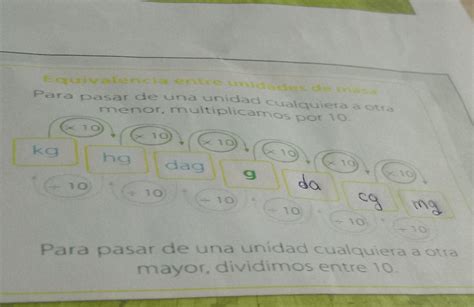 Equivalencia entre unidades de masa
Para pasar de una unidad cualquiera a otra
menor, multiplicamos por 10.
× 10 × 10 × 10 × 10 × 10 × 10
kg hg dag g da cg mg
÷ 10 ÷ 10 ÷ 10 ÷ 10 ÷ 10 ÷ 10
Para pasar de una unidad cualquiera a otra
mayor, dividimos entre 10.